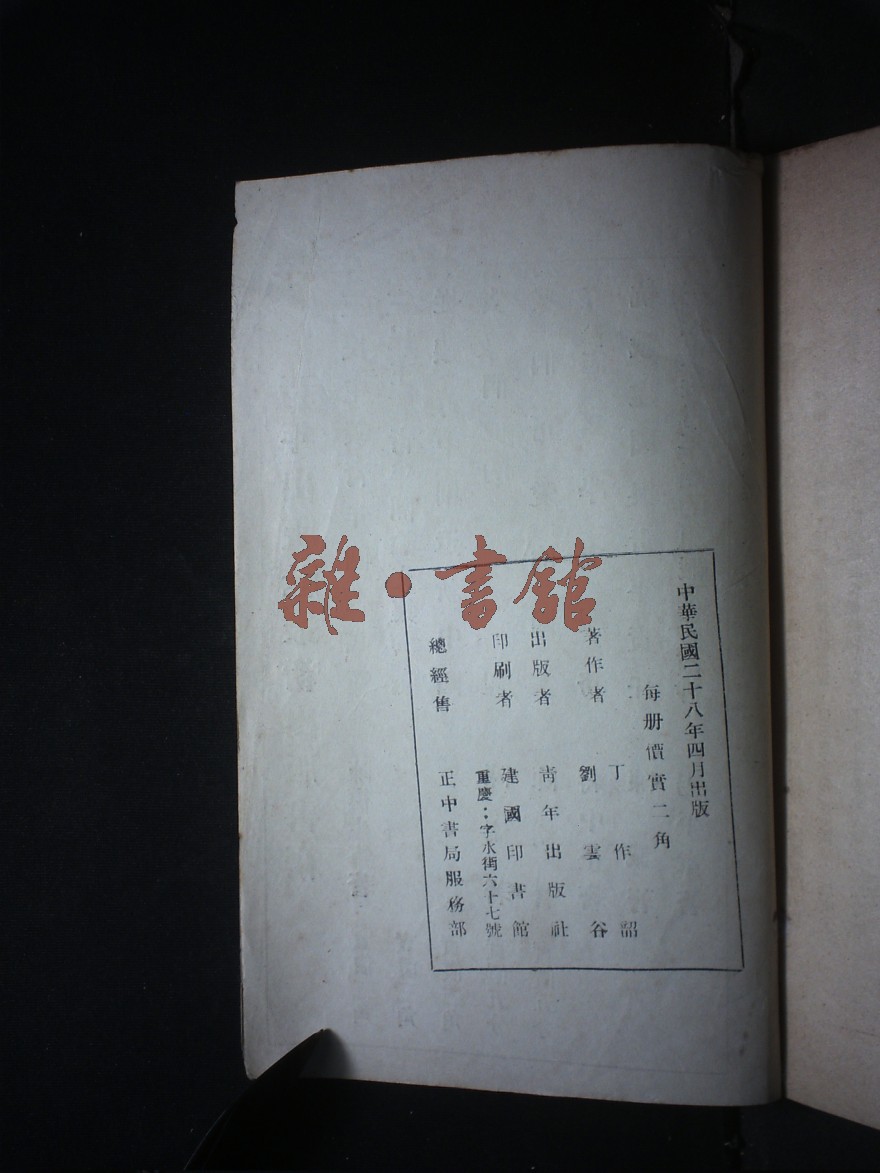 中華民國二十八年四月出版
每册價實二角
著作者 丁作韶
劉雲谷
出版者 青年出版社
印刷者 建國印書館
重慶：字水街六十七號
總經售 正中書局服務部
雜·書館